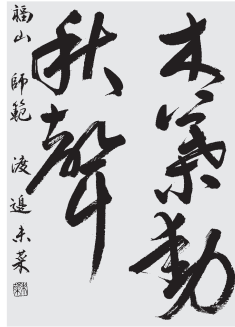 木葉動
秋聲
福山 師範 渡邉未菜